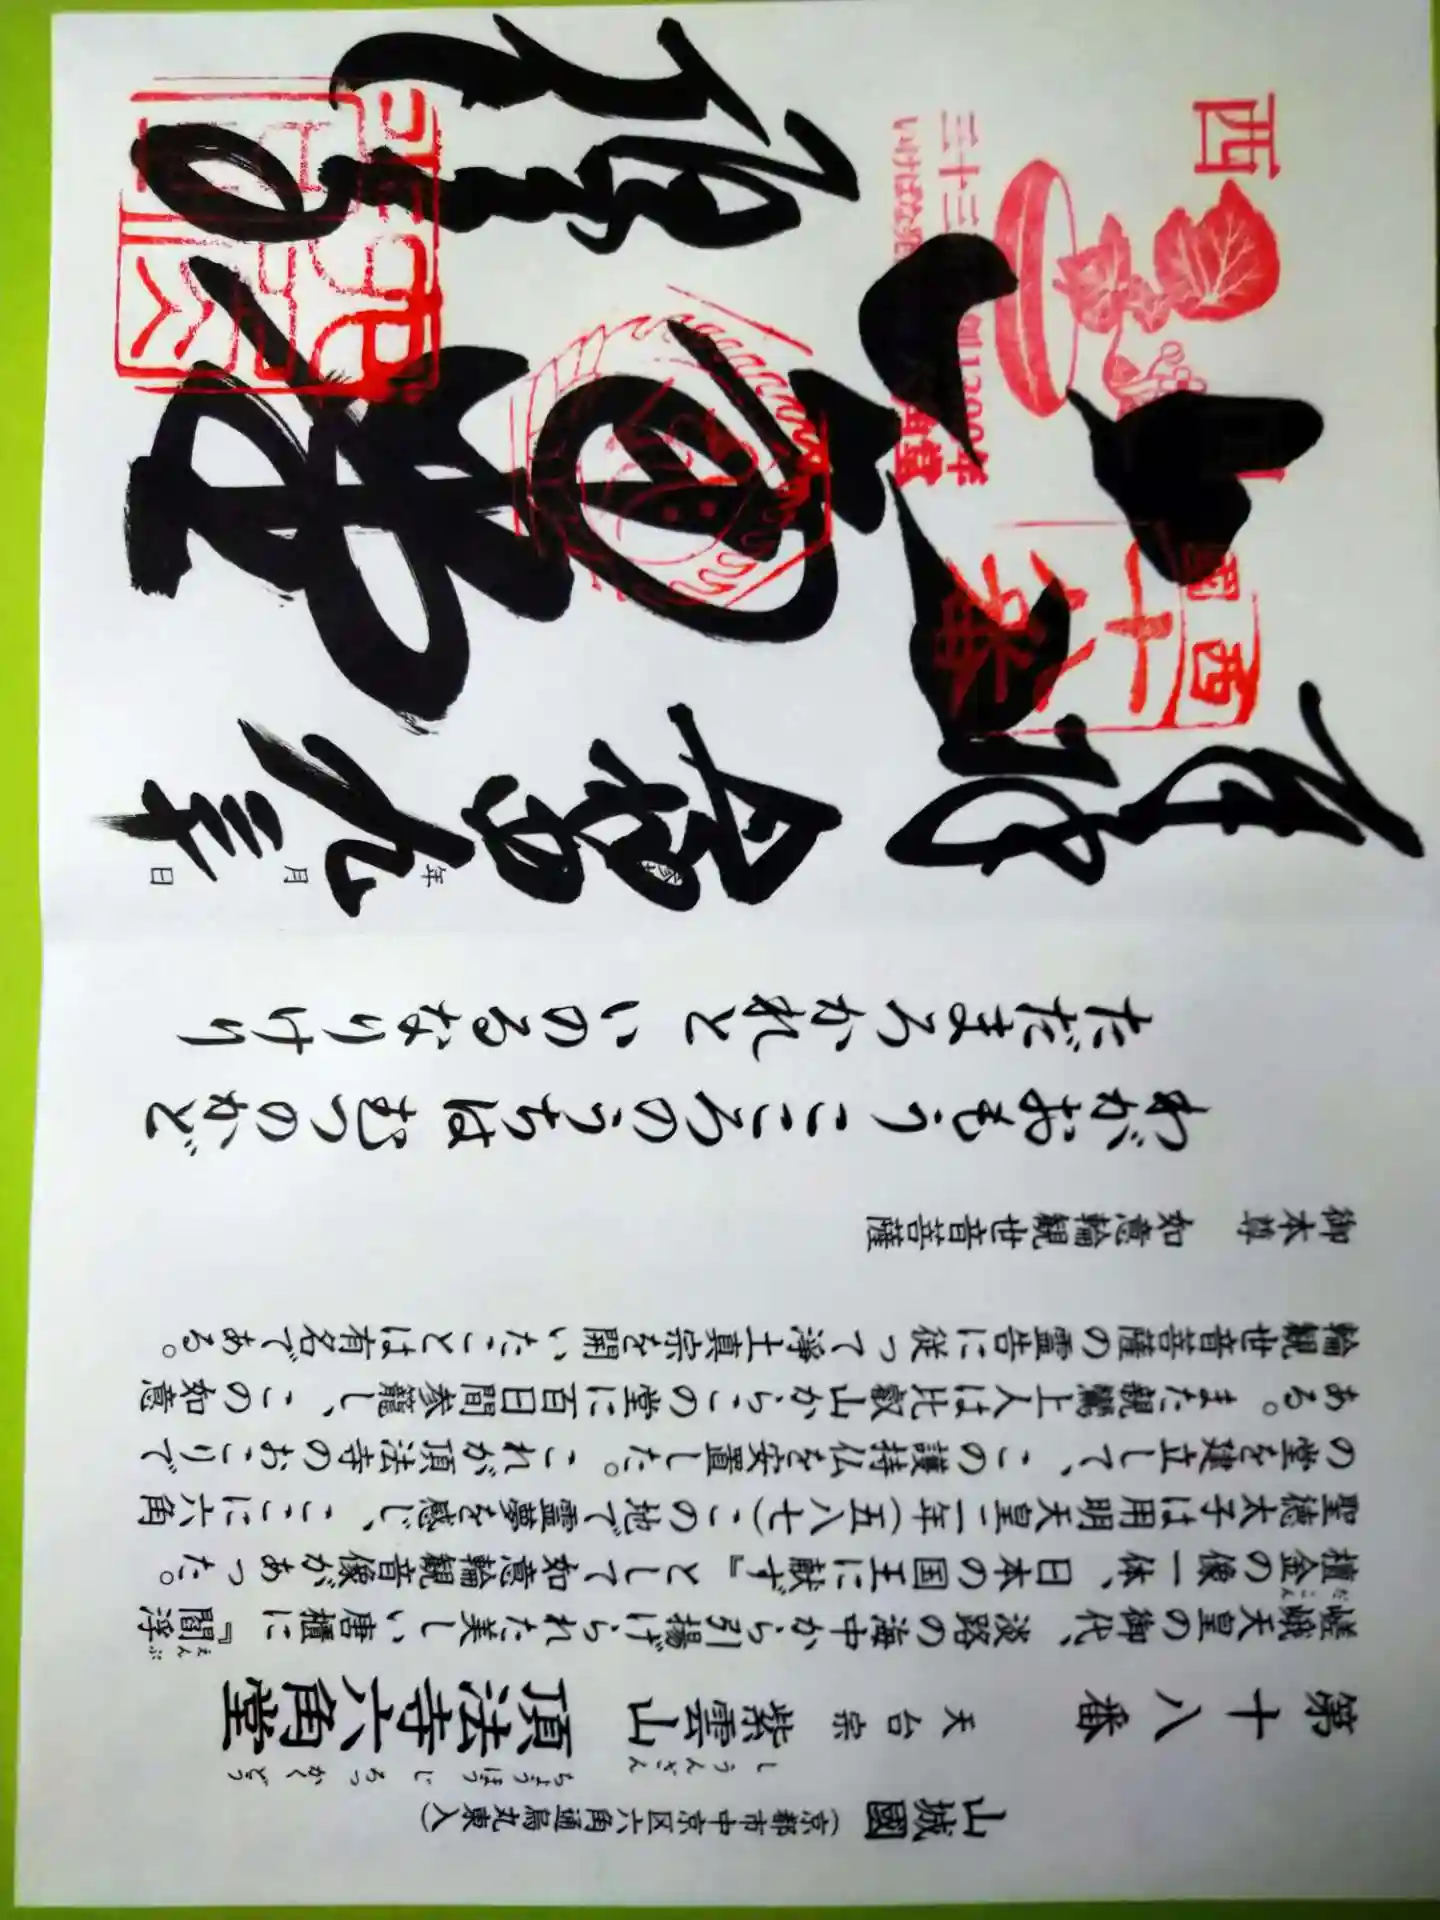 山城國（京都市中京区六角通烏丸東入）
しうんざん
ちょうほうじ ろっかくどう
第十八番 天台宗 紫雲山 頂法寺六角堂
えんぶ
嵯峨天皇の御代、淡路の海中から引揚げられた美しい唐櫃に『閻浮
だごん
檀金の像一体、日本の国王に献ず』として如意輪観音像があった。
聖徳太子は用明天皇二年（五八七）この地で霊夢を感じ、ここに六角
の堂を建立して、この護持仏を安置した。これが頂法寺のおこりで
ある。また親鸞上人は比叡山からこの堂に百日間参籠し、この如意
輪観世音菩薩の霊告に従って浄土真宗を開いたことは有名である。
御本尊 如意輪観世音菩薩
わがおもう こころのうちは むつのかど
ただまろかれと いのるなりけり
奉拝
西
國
西國
十八番
三十三
1300年
いけばな発
年
月
日